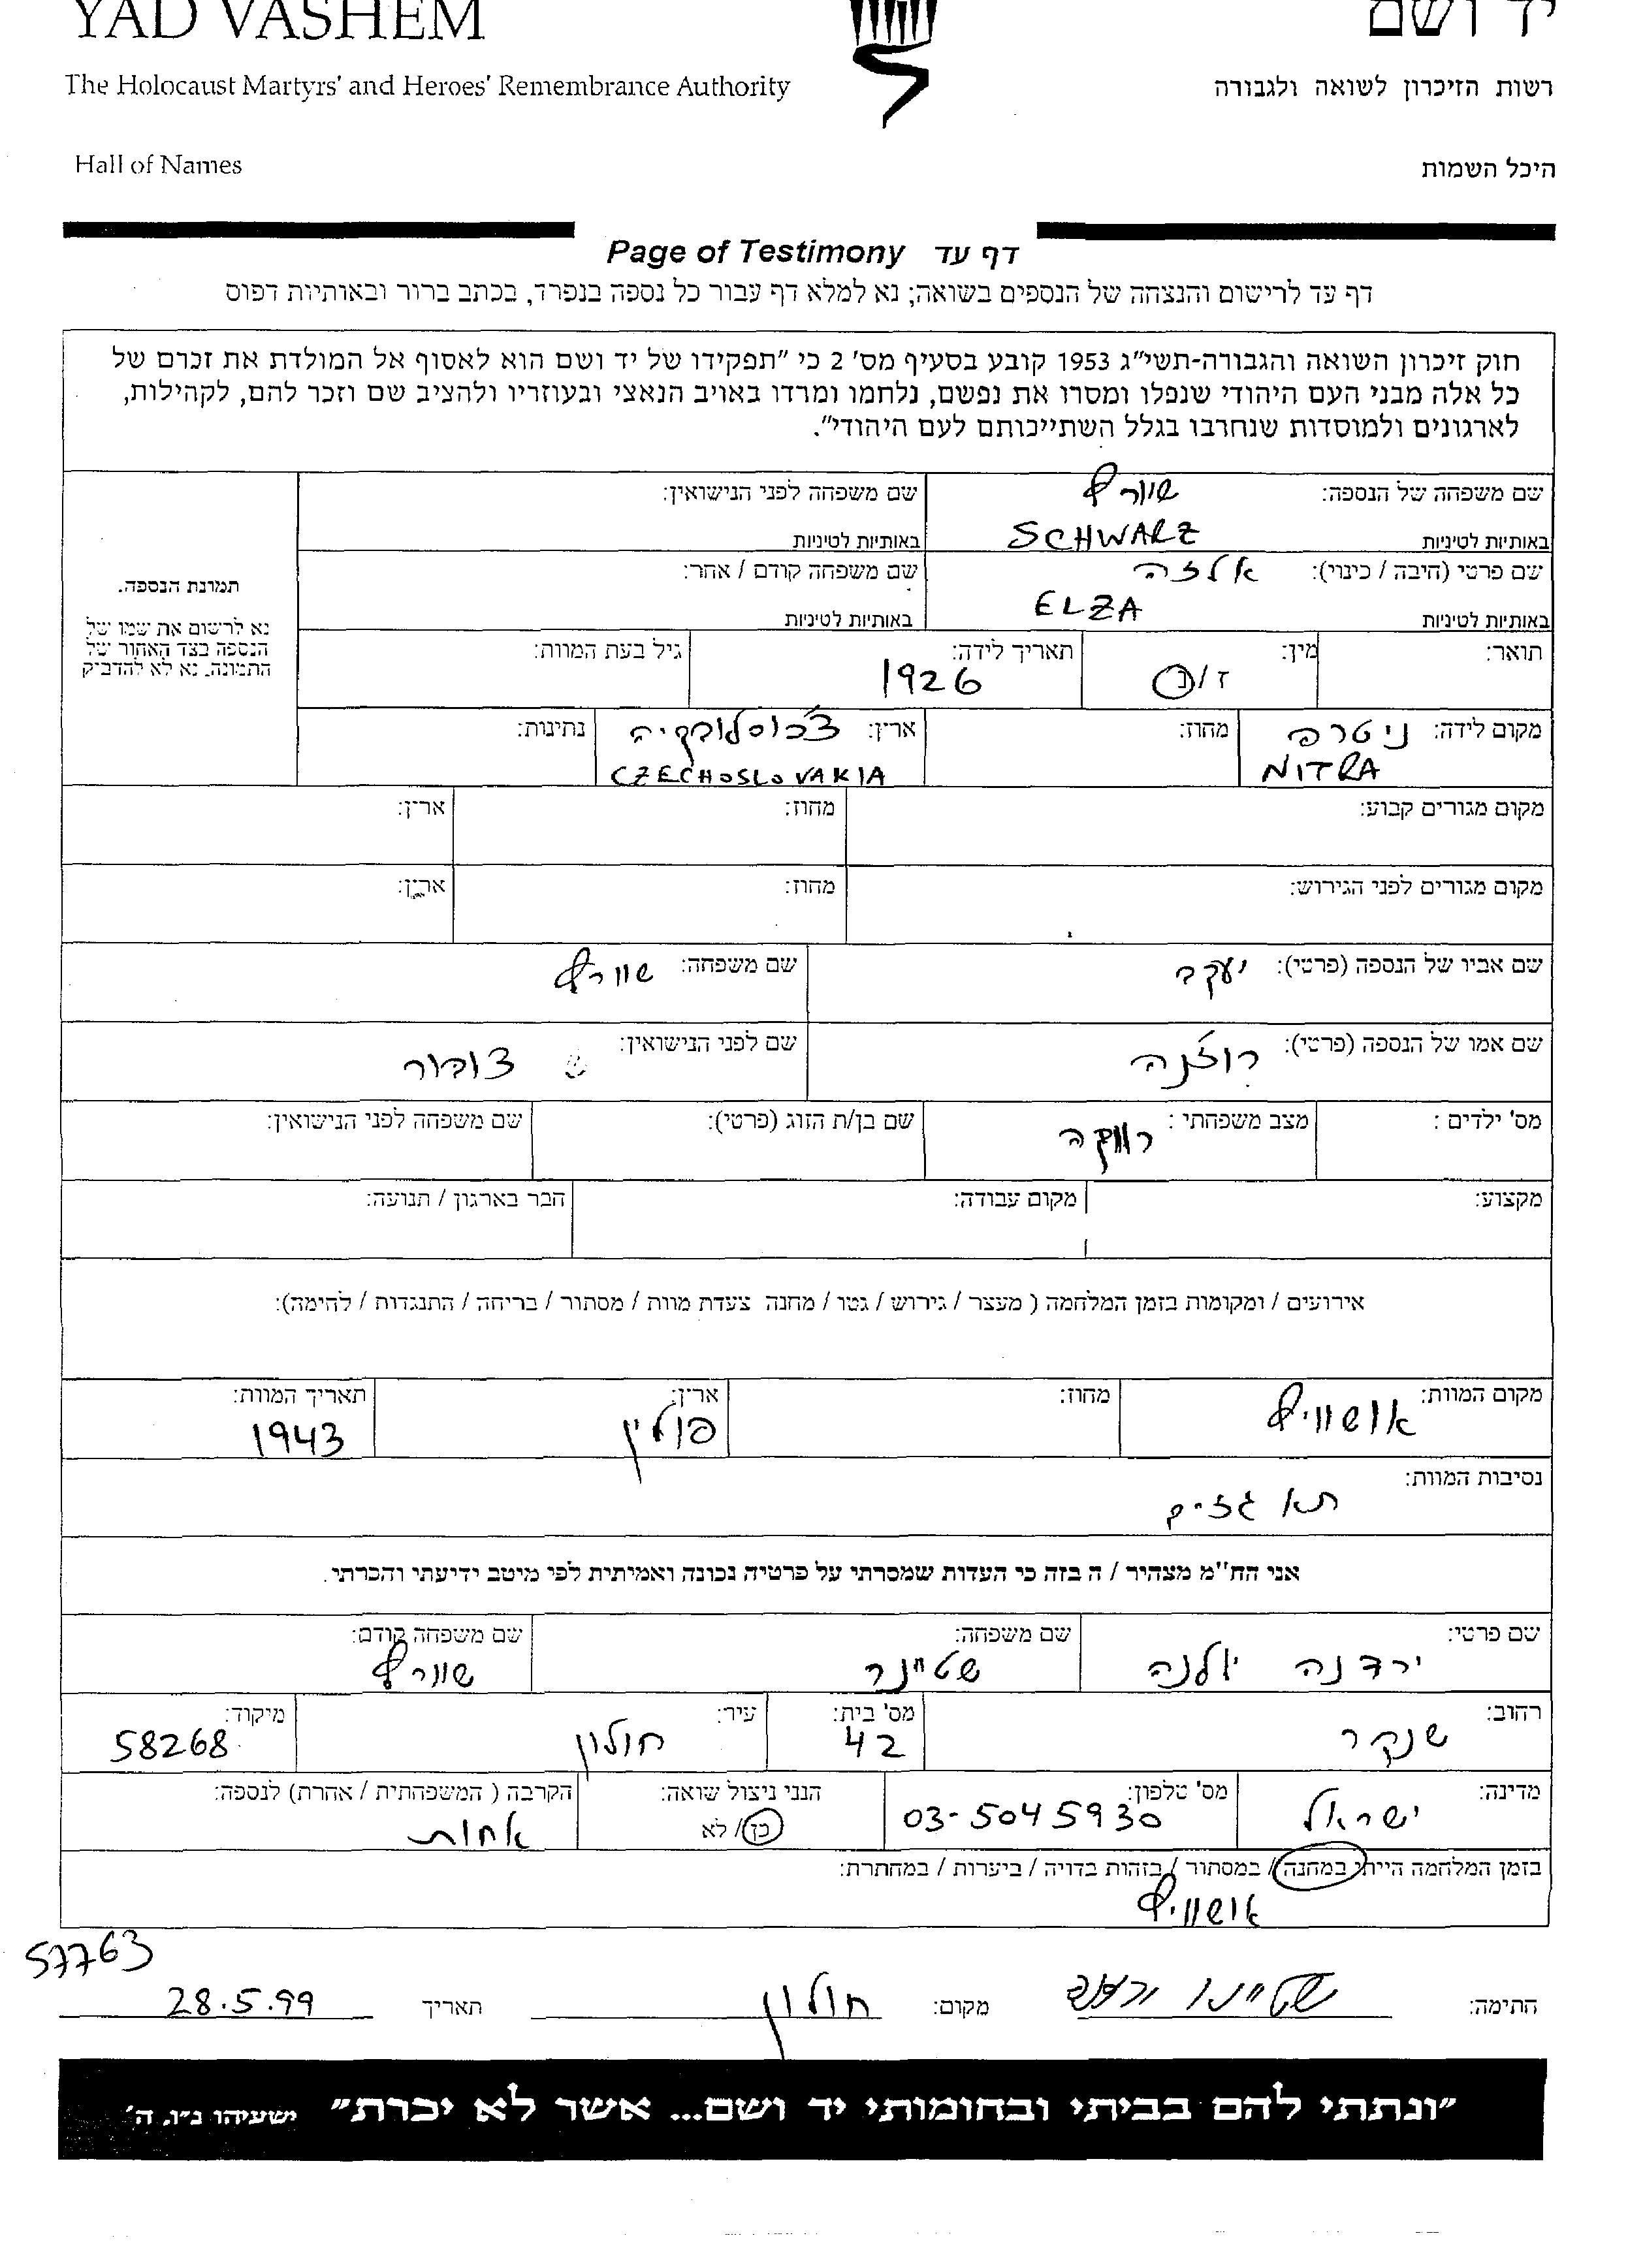 YAD VASHEM יד ושם
The Holocaust Martyrs' and Heroes' Remembrance Authority רשות הזיכרון לשואה ולגבורה
Hall of Names היכל השמות
Page of Testimony דף עד
דף עד לרישום והנצחה של הנספים בשואה; נא למלא דף עבור כל נספה בנפרד, בכתב ברור ובאותיות דפוס
חוק זיכרון השואה והגבורה-תשי"ג 1953 קובע בסעיף מס' 2 כי "תפקידו של יד ושם הוא לאסוף אל המולדת את זכרם של
כל אלה מבני העם היהודי שנפלו ומסרו את נפשם, נלחמו ומרדו באויב הנאצי ובעוזריו ולהציב שם וזכר להם, לקהילות,
לארגונים ולמוסדות שנחרבו בגלל השתייכותם לעם היהודי".
שם משפחה של הנספה: שוורץ שם משפחה לפני הנישואין:
באותיות לטיניות SCHWARZ באותיות לטיניות
שם פרטי (חיבה / כינוי): אלזה שם משפחה קודם / אחר:
באותיות לטיניות ELZA באותיות לטיניות
תמונת הנספה.
נא לרשום את שמו של
הנספה בצד האחור של
התמונה. נא לא להדביק
תואר: מין: ז/נ תאריך לידה: 1926 גיל בעת המוות:
מקום לידה: ניטרה מחוז: ארץ: צ'כוסלובקיה נתינות:
NITRA CZECHOSLOVAKIA
מקום מגורים קבוע: מחוז: ארץ:
מקום מגורים לפני הגירוש: מחוז: ארץ:
שם אביו של הנספה (פרטי): יעקב שם משפחה: שוורץ
שם אמו של הנספה (פרטי): רוז'נה שם לפני הנישואין: צובור
מס' ילדים : מצב משפחתי : רווקה שם בן/ת הזוג (פרטי): שם משפחה לפני הנישואין:
מקצוע: מקום עבודה: חבר בארגון / תנועה:
אירועים / ומקומות בזמן המלחמה ( מעצר / גירוש / גטו / מחנה צעדת מוות / מסתור / בריחה / התנגדות / לחימה):
מקום המוות: אושוויץ מחוז: ארץ: פולין תאריך המוות: 1943
נסיבות המוות:
תא גזים
אני החו"מ מצהיר / ה בזה כי העדות שמסרתי על פרטיה נכונה ואמיתית לפי מיטב ידיעתי והכרתי.
שם פרטי: ירדנה יולנה שם משפחה: שטיינר שם משפחה קודם: שוורץ
רחוב: שנקר מס' בית: 42 עיר: חולון מיקוד: 58268
מדינה: ישראל מס' טלפון: 03-5045930 הנני ניצול שואה: כן / לא הקרבה ( המשפחתית / אחרת) לנספה: אחות
בזמן המלחמה הייתי במחנה / במסתור / בזהות בדויה / ביערות / במחתרת:
אושוויץ
57763
חתימה: מקום: חולון תאריך 28.5.99
"ונתתי להם בביתי ובחומותי יד ושם... אשר לא יכרת" ישעיהו נ"ו, ה'